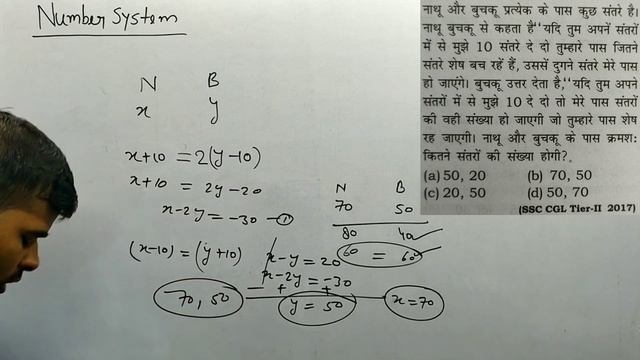 Number System
नाथू और बुचकू प्रत्येक के पास कुछ संतरे है।
नाथू बुचकू से कहता है "यदि तुम अपनें संतरों
में से मुझे 10 संतरे दे दो तुम्हारे पास जितने
संतरे शेष बच रहें हैं, उससें दुगने संतरे मेरे पास
हो जाएंगे। बुचकू उत्तर देता है,"यदि तुम अपने
संतरों में से मुझे 10 दे दो तो मेरे पास संतरों
की वही संख्या हो जाएगी जो तुम्हारे पास शेष
रह जाएगी। नाथू और बुचकू के पास क्रमश:
कितने संतरों की संख्या होगी?
(a) 50, 20 (b) 70, 50
(c) 20, 50 (d) 50, 70
(SSC CGL Tier-II 2017)
N B
x y
x+10 = 2(y-10)
x+10 = 2y-20
x-2y = -30 -①
(x-10) = (y+10)
x-y = 20
x-2y = -30
- + +
y = 50
x = 70
70, 50
N B
70 50
80 40
60 = 60